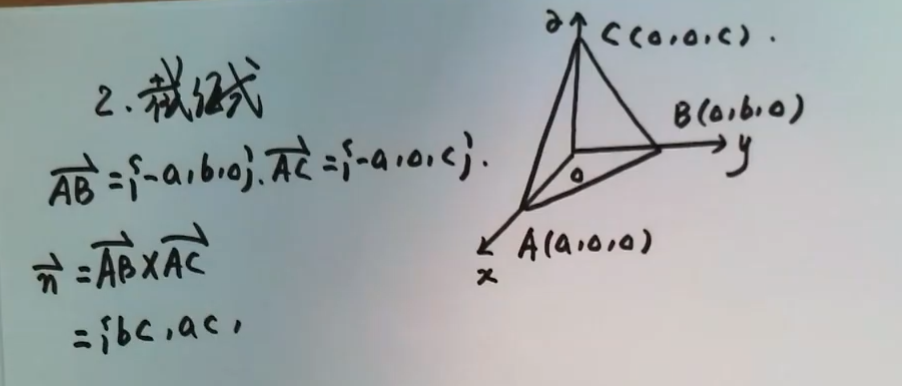 2. 截距式
AB = {-a, b, 0}. AC = {-a, 0, c}.
n = AB × AC
= {bc, ac,
z
C(0, 0, c).
B(0, b, 0)
y
0
A(a, 0, 0)
x